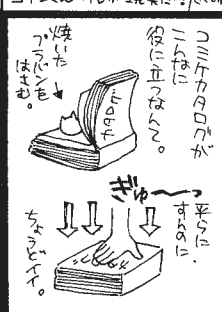 コミケカタログが
こんなに
役に立つなんて。
焼いた
プラバンを
はさむ。
ぎゅ〜〜っ
平らに
すんのに、
ちょうどイイ。